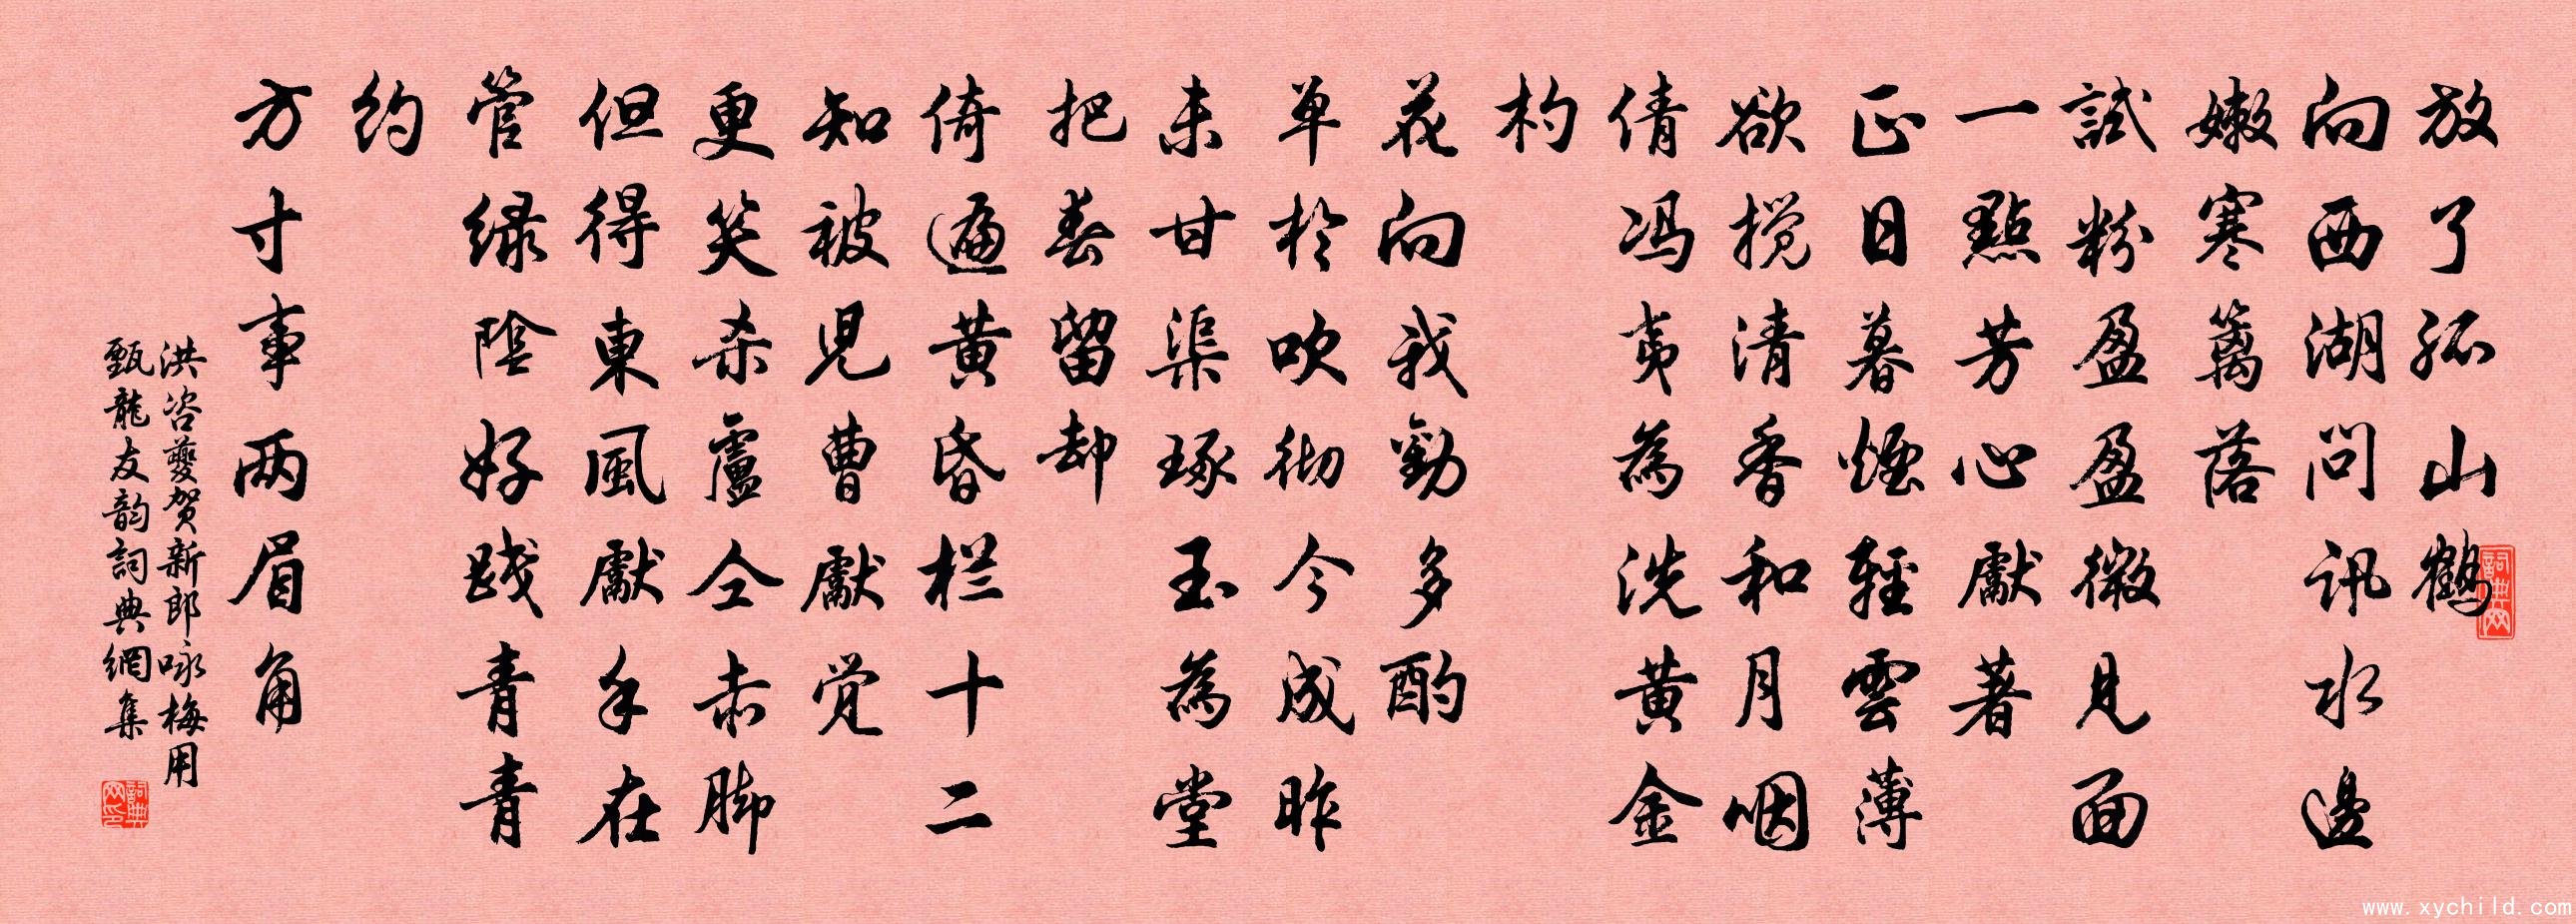 放了孤山鹤
向西湖問訊水邊
嫩寒篱落
試粉盈盈微見面
一點芳心獻著
正日暮煙輕雲薄
欲搅清香和月咽
倩冯夷為洗黄金
杓
花向我勸多酌
单於吹彻今成昨
未甘渠琢玉為堂
把春留却
倚遍黄昏栏十二
知被児曹獻觉
更笑杀盧仝赤脚
但得東風獻手在
管绿陰好践青青
约
方寸事两眉角
洪咨夔贺新郎咏梅用
甄龍友韵詞典網集
詞典网
www.xychild.com